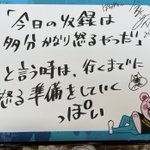 「今日の収録は
多分かなり怒るやつだ」
と言う時は、行くまでに
怒る準備をしていく
っぽい